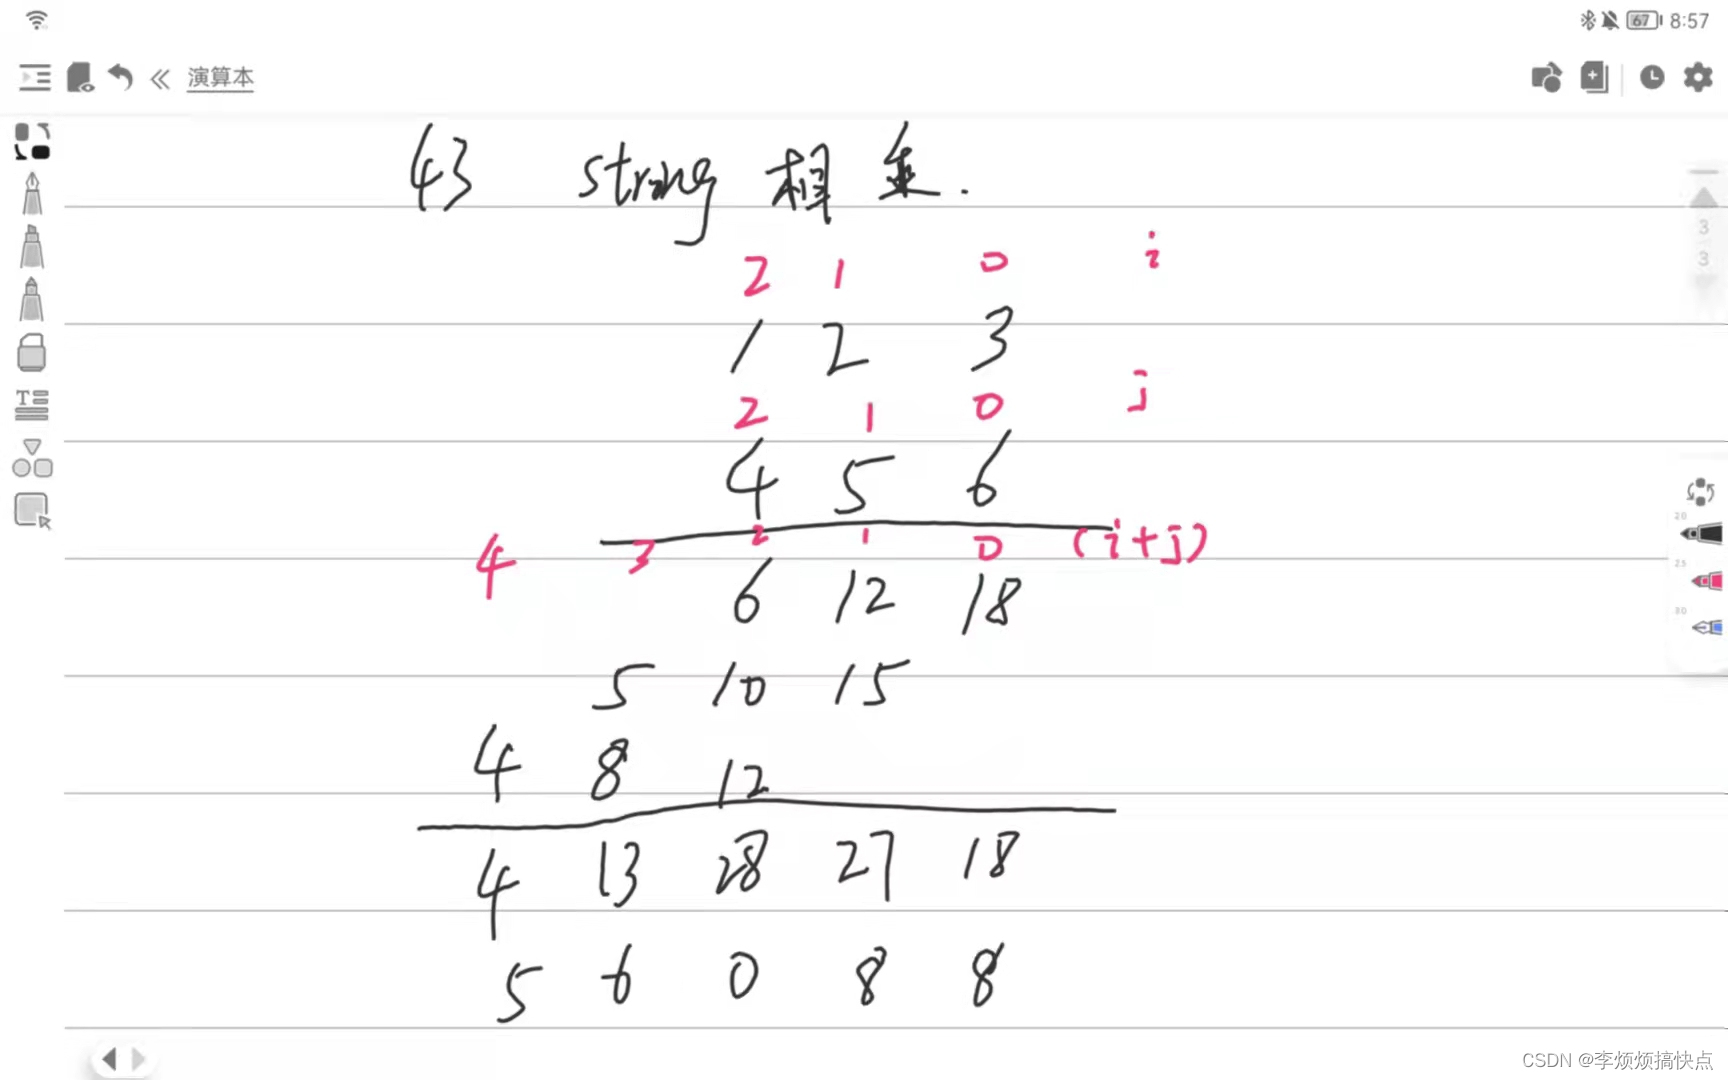 8:57
67
演算本
43 string 相乘.
2 1 0 i
1 2 3
2 1 0 j
4 5 6
4 3 2 1 0 (i+j)
6 12 18
5 10 15
4 8 12
4 13 28 27 18
5 6 0 8 8
3
3
20
25
30
CSDN @李烦烦搞快点